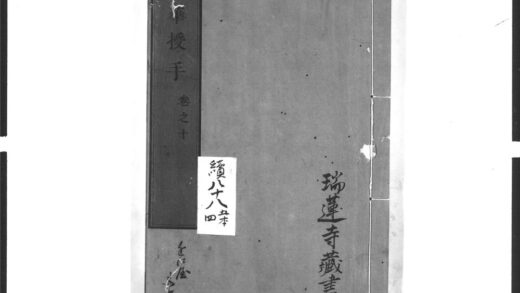 瑞蓮寺藏書
授手 卷之十
續八十八
五本
四